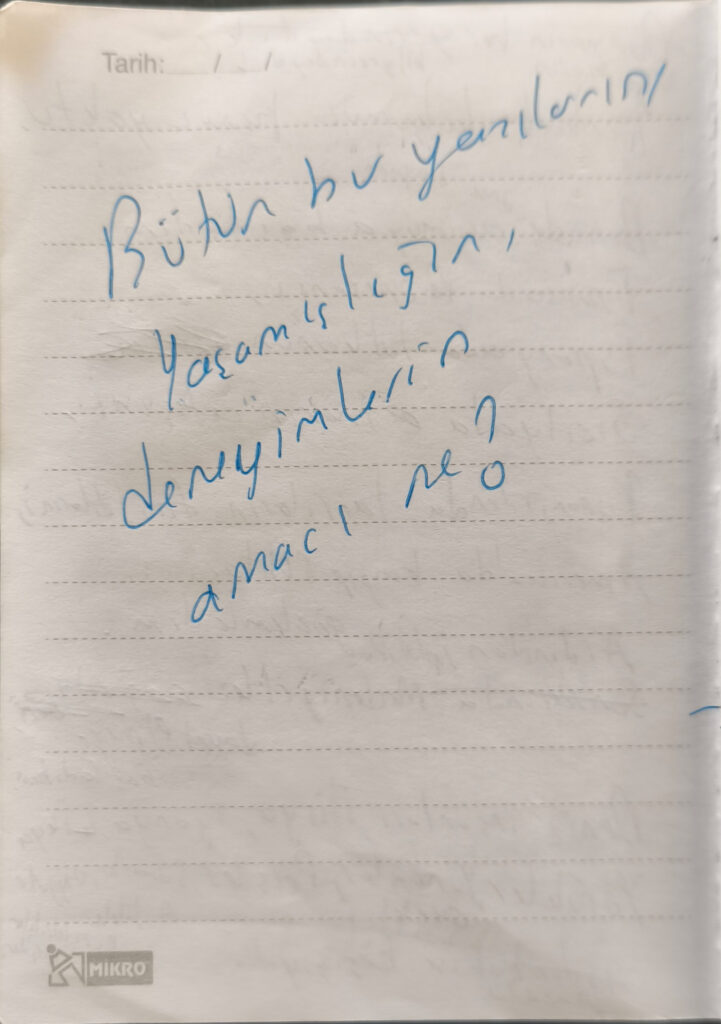 Tarih: / /
Bütün bu yazıların,
Yaşamışlığın,
deneyimlerin
amacı ne?
MİKRO